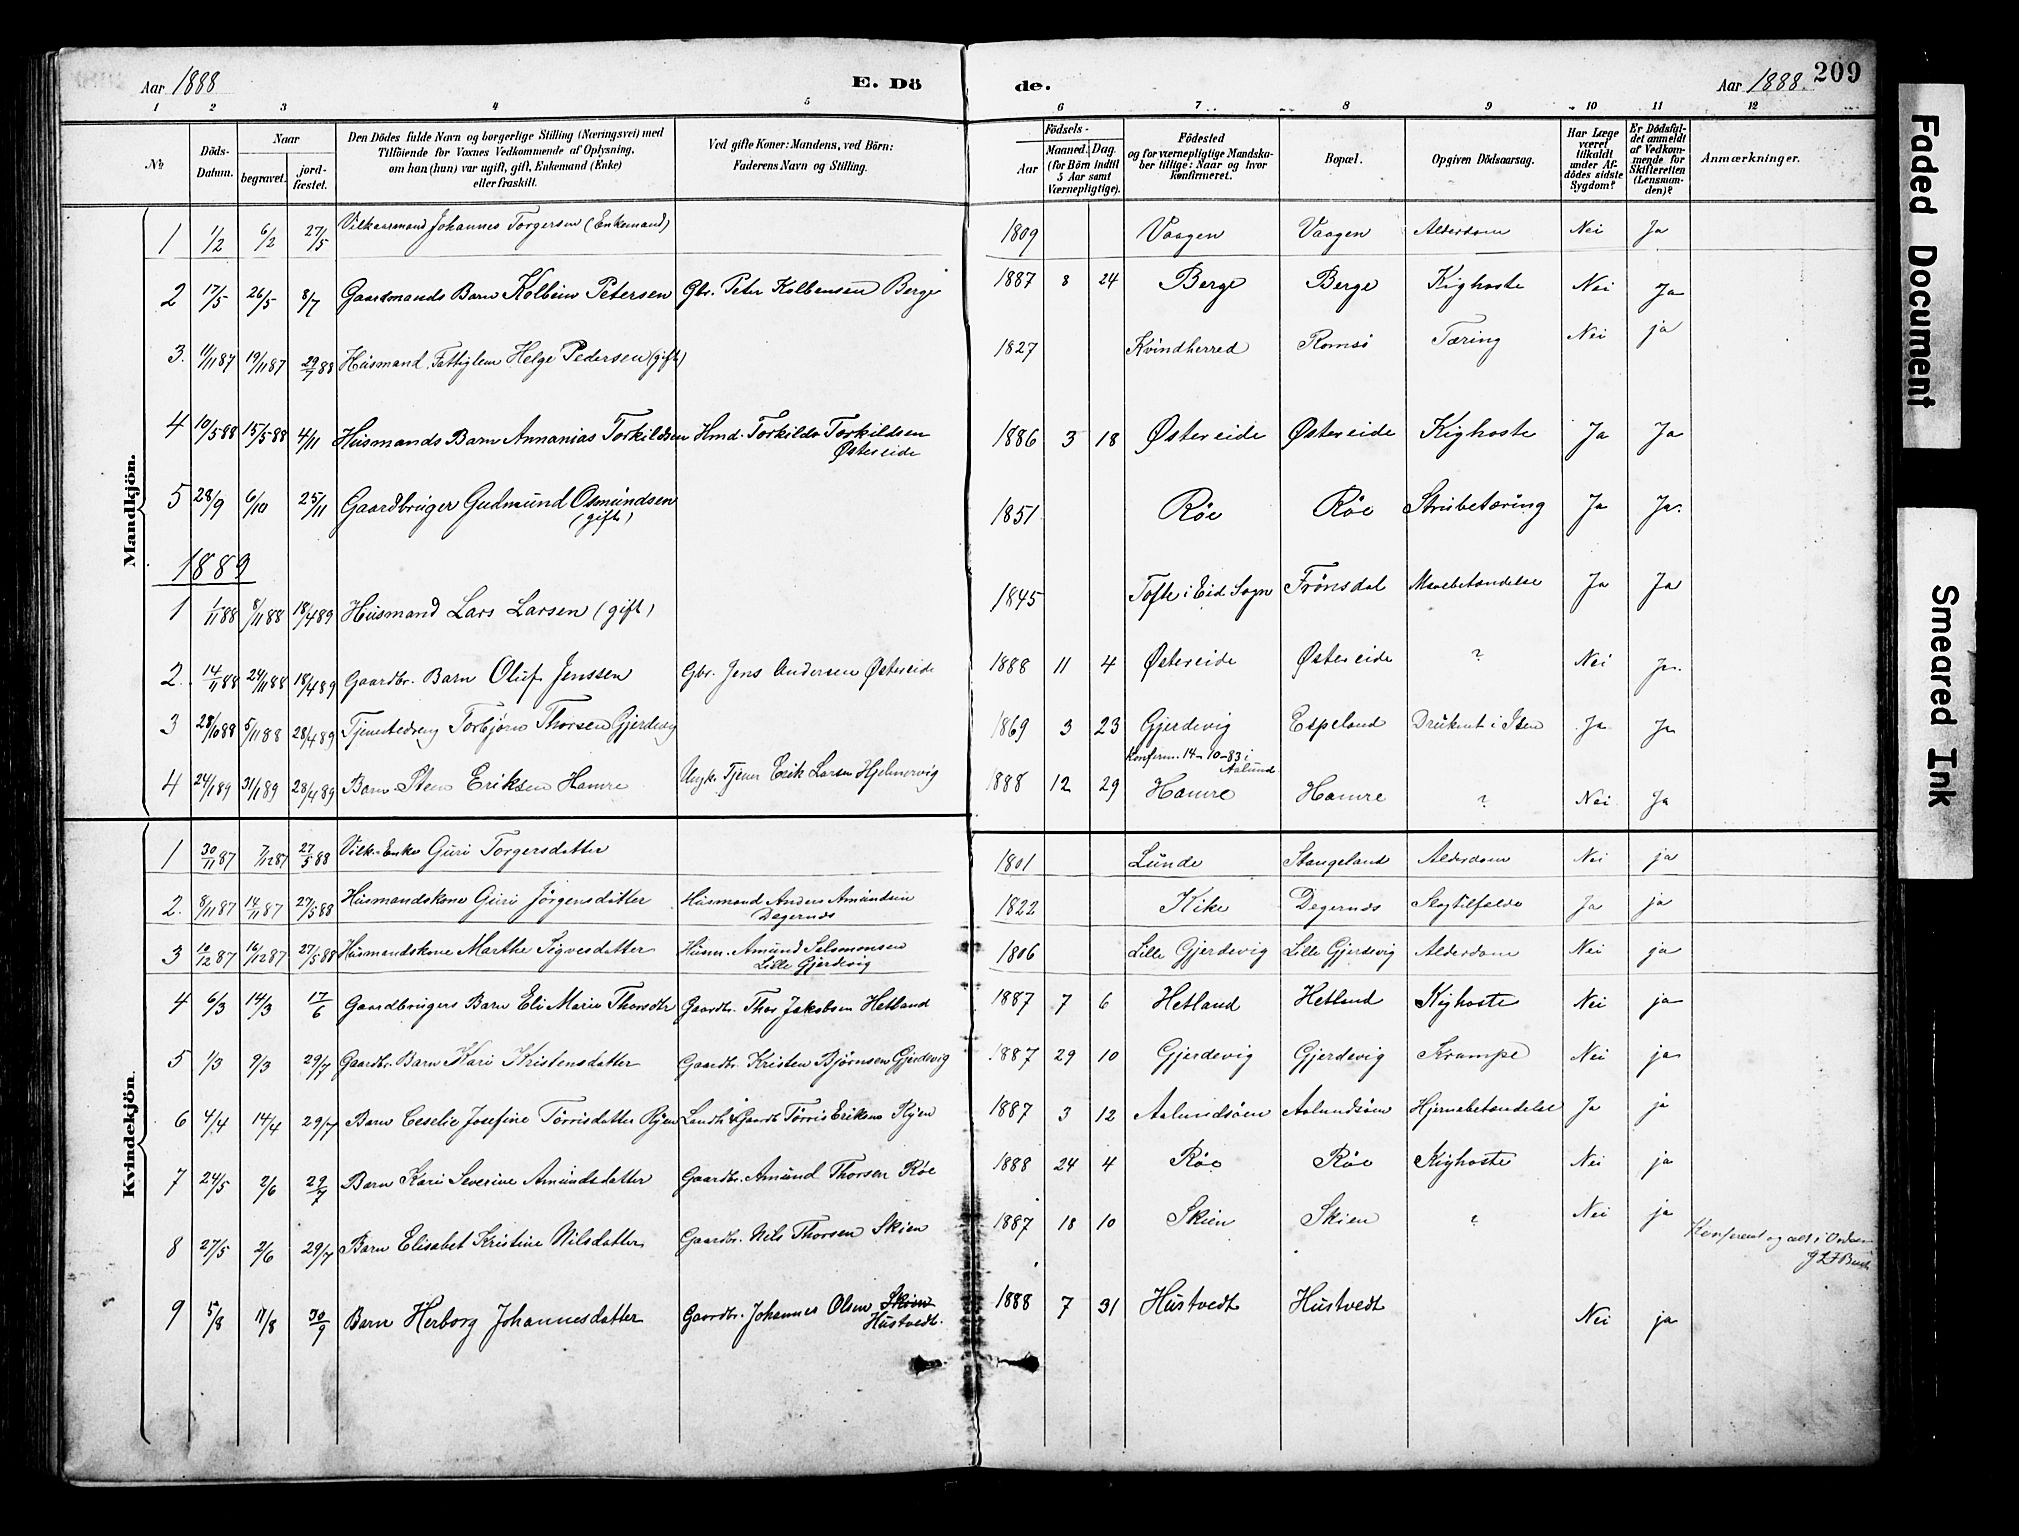 Aar 1888
E. Dö
de.
Aar 1888. 209
1 2 3 4 5 6 7 8 9 10 11 12
No
Döds-Datum.
Naar
begravet.
jordfæstet.
Den Dödes fulde Navn og borgerlige Stilling (Næringsvei) med
Tilföiende for Voxnes Vedkommende af Oplysning,
om han (hun) var ugift, gift, Enkemand (Enke)
eller fraskilt.
Ved gifte Koner: Mandens, ved Börn:
Faderens Navn og Stilling.
Födsels-
Aar
Maaned. Dag.
(for Börn indtil
5 Aar samt
Værnepligtige).
Födested
og for værnepligtige Mandskaber tillige: Naar og hvor
konfirmeret.
Bopæl.
Opgiven Dödsaarsag.
Har Læge
været
tilkaldt
under Afdödes sidste
Sygdom?
Er Dödsfaldet anmeldt
af Vedkommende for
Skifteretten
(Lensmanden)?
Anmærkninger.
Mandkjön.
1 1/2 6/2 27/5 Vilkaarmand Johannes Torgersen (Enkemand) 1809 Vaagen Vaagen Alderdom Nei Ja
2 17/5 26/5 8/7 Gaardmands Barn Kolbein Petersen Gbr. Peter Kolbensen Berge 1887 8 24 Berge Berge Kighoste Nei Ja
3. 11/11 87 19/11 87 29/7 88 Husmand, Fattiglem Helge Pedersen (gift) 1827 Kvindherred Romsö Tæring Nei ja
4 10/5 88 15/5 88 4/11 Husmands Barn Annanias Torkildsen Hmd. Torkilds Torkildsen
Østereide 1886 3 18 Østereide Østereide Kighoste Ja Ja
5 28/9 6/10 25/11 Gaardbruger Gudmund Osmundsen
(gift) 1851 Röe Röe Strubetæring Ja Ja.
1889
1 1/11 88 8/11 88 18/4 89 Husmand Lars Larsen (gift) 1845 Tofte i Eid Sogn Frönsdal Mavebetændelse Ja Ja
2. 14/11 88 24/11 88 18/4 89 Gaardbr. Barn Oluf Jenssen Gbr. Jens Andersen Østereide 1888 11 4 Østereide Østereide ? Nei Ja.
3 28/10 88 5/11 88 28/4 89 Tjenstedreng Torbjörn Thorsen Gjerdevig 1869 3 23 Gjerdevig Espeland Druknet i Isen Ja Ja
Konfirm. 14-10-83 i
Aalund
4 24/1 89 31/1 89 28/4 89 Barn Sten Eriksen Hamre Ungk. Tjener Erik Larsen Hjelmervig 1888 12 29 Hamre Hamre ? Nei Ja
Kvindekjön.
1 30/11 87 7/12 87 27/5 88 Vilk. Enke Guri Torgersdatter 1801 Lunde Stangeland Alderdom Nei ja
2. 8/11 87 14/11 87 27/5 88 Husmandskone Guri Jörgensdatter Husmand Anders Amundsen
Degernds 1822 Kike Degernds Slagtilfælde Ja ja
3 10/12 87 16/12 87 27/5 88 Husmandskone Marthe Sigvesdatter Husm. Amund Salomonsen
Lille Gjerdevig 1806 Lille Gjerdevig Lille Gjerdevig Alderdom Nei ja
4 6/3 14/3 17/6 Gaardbrugers Barn Eli Marie Thorsdtr Gaardbr. Thos Jakobsen Hetland 1887 7 6 Hetland Hetland Kighoste Nei ja
5 1/3 9/3 29/7 Gaardbr. Barn Kari Kristensdatter Gaardbr. Kristen Björnsen Gjerdevig 1887 29 10 Gjerdevig Gjerdevig Krampe Nei ja
6 4/4 14/4 29/7 Barn Ceselie Josefine Törrisdatter Röjen Landh. & Gaardb Törris Eriksens Röjen 1887 3 12 Aalundsöen Aalundsöen Hjernebetændelse Ja ja
7 24/5 2/6 29/7 Barn Kari Severine Amundsdatter Gaardbr. Amund Thorsen Röe 1888 24 4 Röe Röe Kighoste Nei ja
8 27/5 2/6 29/7 Barn Elisabet Kristine Nilsdatter Gaardbr. Nils Thorsen Skien 1887 18 10 Skien Skien ? Nei ja
Konfereret og alt i Orden
9 5/8 11/8 30/9 Barn Herborg Johannesdatter Gaardbr. Johannes Olsen Skien
Hustvedt. 1888 7 31 Hustvedt Hustvedt Nei ja
Faded Document
Smeared Ink